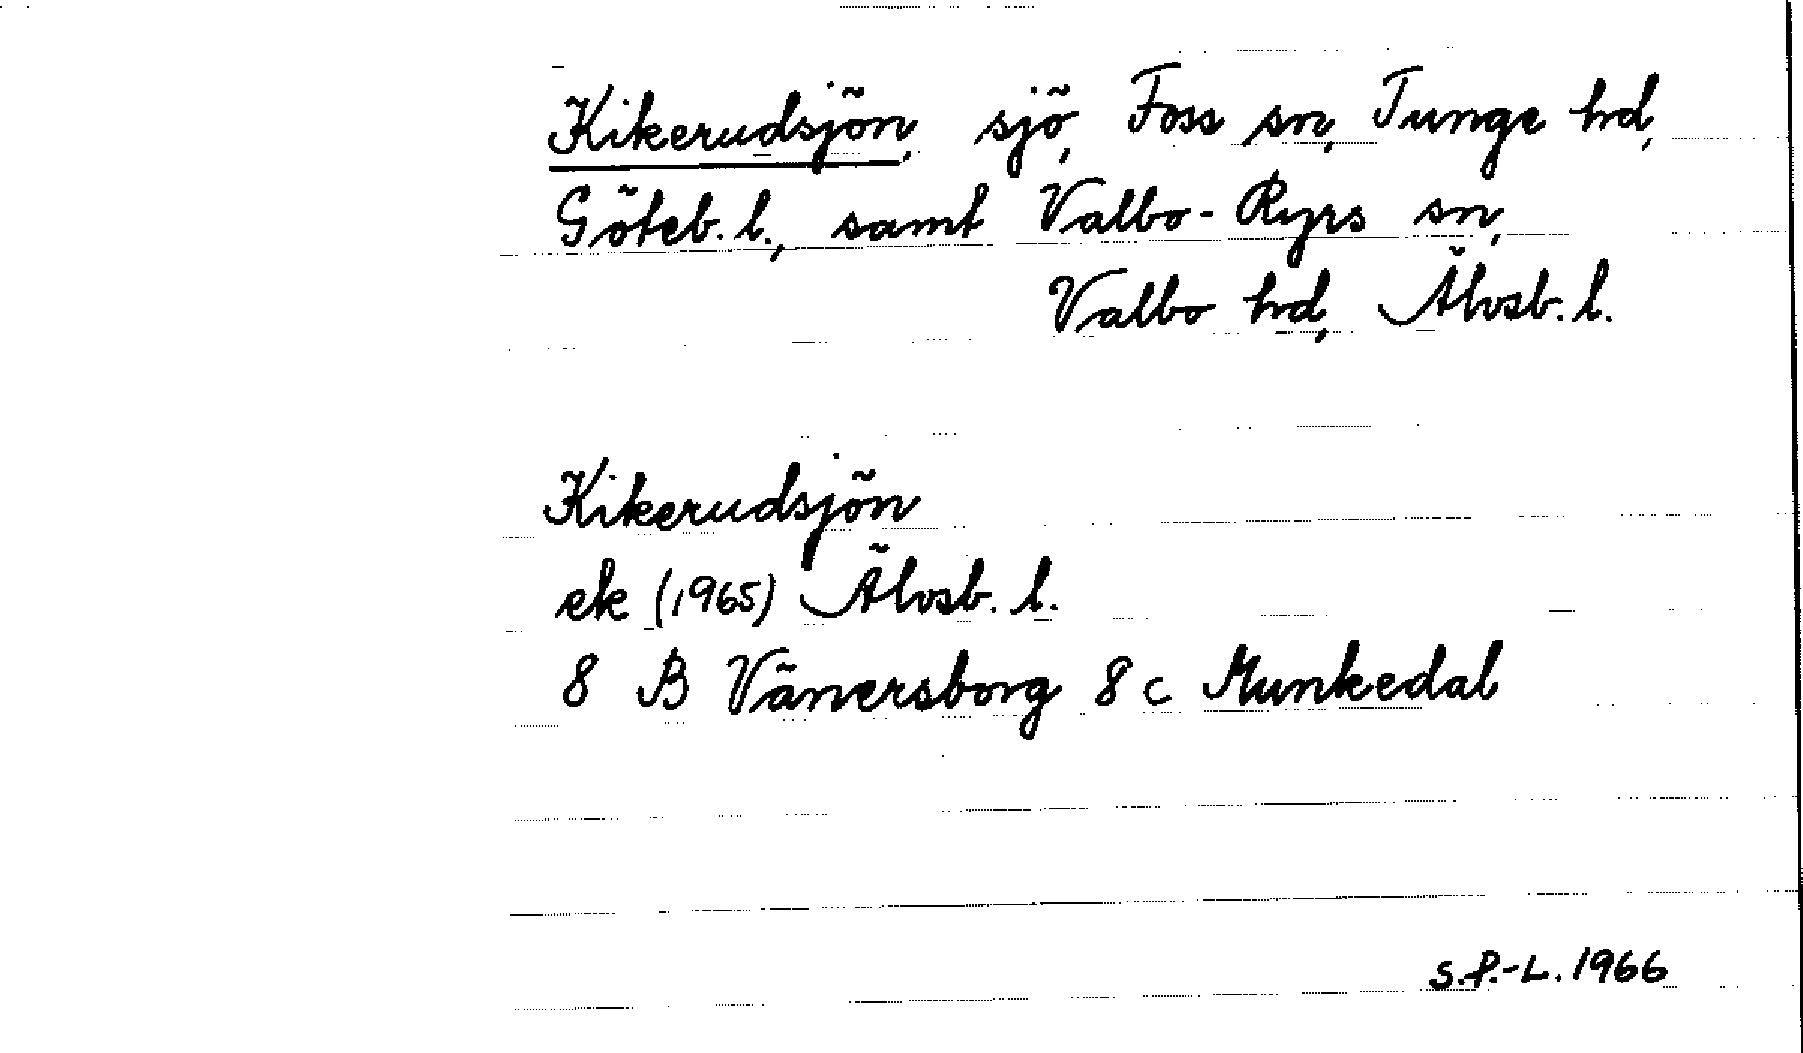 Kikerudsjön, sjö, Foss sn, Tunge hd,
Göteb. l., samt Valbo-Ryrs sn,
Valbo hd, Älvsb. l.
Kikerudsjön
ek (1965) Älvsb. l.
8 B Vänersborg 8 c Munkedal
S.P.-L. 1966